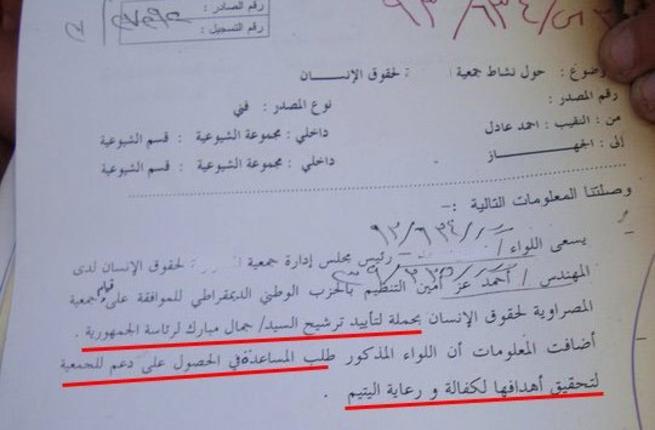 رقم الصادر :
رقم التسجيل :
٩٣/٦٣٤/
وضوع : حول نشاط جمعية ة لحقوق الإنسـان
رقم المصدر : نوع المصدر : فني
من : النقيب : احمد عادل داخلي : مجموعة الشيوعية : قسم الشيوعية
إلى : الجهـاز داخلي : مجموعة الشيوعية : قسم الشيوعية
وصلتنا المعلومات التالية :-
٩٣/٦٣٤/
يسعى اللواء / – رئيس مجلس إدارة جمعية لحقوق الإنسان لدى
المهندس / أحمد عز أمين التنظيم بالحزب الوطني الديمقراطي للموافقة على قيام جمعية
المصراوية لحقوق الإنسان بحملة لتأييد ترشيح السيد/ جمال مبارك لرئاسة الجمهورية .
أضافت المعلومات أن اللواء المذكور طلب المساعدة في الحصول على دعم للجمعية
لتحقيق أهدافها لكفالة و رعاية اليتيم .